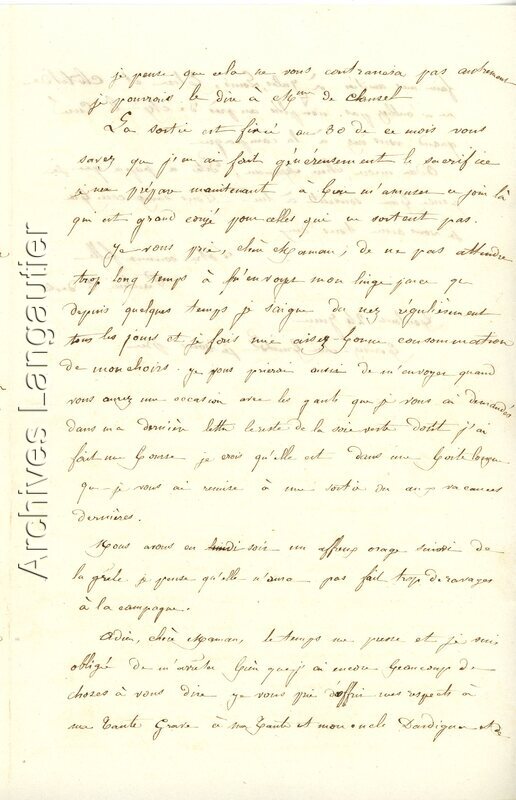 je pense que cela ne vous contrariera pas autrement
je pourrois le dire à Mme de Clausel
La sortie est fixée au 30 de ce mois vous
savez que j'en ai fait généreusement le sacrifice
je me prépare maintenant à bien m'amuser ce jour là
qui est grand congé pour celles qui ne sortent pas.
Je vous prie, chère Maman, de ne pas attendre
trop long temps à m'envoyer mon linge parce que
depuis quelques temps je saigne du nez régulièrement
tous les jours et je fais une assez bonne consommation
de mouchoirs. je vous prierai aussi de m'envoyer quand
vous aurez une occasion avec les gants que je vous ai demandés
dans ma dernière lettre le reste de la soie verte dont j'ai
fait une bourse je crois qu'elle est dans une boite longue
que je vous ai remise à une sortie ou aux vacances
dernières.
Nous avons eu lundi soir un affreux orage suivi de
la grêle je pense qu'elle n'aura pas fait trop de ravages
à la campagne.
Adieu, chère Maman, le temps me presse et je suis
obligé de m'arrêter bien que j'ai encore beaucoup de
choses à vous dire je vous prie d'offrir mes respects à
ma Tante Grave à ma Tante et mon oncle Dardigna
Archives Langautier